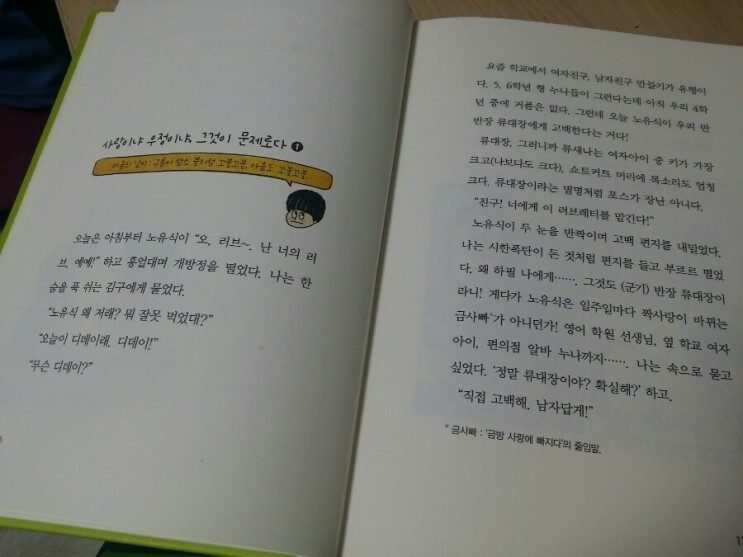 사랑이냐 우정이냐, 그것이 문제로다 ❶
마음의 날씨 : 구름이 염소 뿔처럼 꼬불꼬불. 마음도 꼬불꼬불.
오늘은 아침부터 노유식이 "오, 러브~. 난 너의 러
브, 예예!" 하고 흥얼대며 개방정을 떨었다. 나는 한
숨을 푹 쉬는 김구에게 물었다.
"노유식 왜 저래? 뭐 잘못 먹었대?"
"오늘이 디데이래, 디데이!"
"무슨 디데이?"
요즘 학교에서 여자친구, 남자친구 만들기가 유행이
다. 5, 6학년 형 누나들이 그런다는데 아직 우리 4학
년 중에 커플은 없다. 그런데 오늘 노유식이 우리 반
반장 류대장에게 고백한다는 거다!
류대장, 그러니까 류새나는 여자아이 중 키가 가장
크고(나보다도 크다), 쇼트커트 머리에 목소리도 엄청
크다. 류대장이라는 별명처럼 포스가 장난 아니다.
"친구! 너에게 이 러브레터를 맡긴다!"
노유식이 두 눈을 반짝이며 고백 편지를 내밀었다.
나는 시한폭탄이 든 것처럼 편지를 들고 부르르 떨었
다. 왜 하필 나에게……. 그것도 (군기) 반장 류대장이
라니! 게다가 노유식은 일주일마다 짝사랑이 바뀌는
금사빠*가 아니던가! 영어 학원 선생님, 옆 학교 여자
아이, 편의점 알바 누나까지……. 나는 속으로 묻고
싶었다. '정말 류대장이야? 확실해?' 하고.
"직접 고백해. 남자답게!"
* 금사빠 : '금방 사랑에 빠지다'의 줄임말.